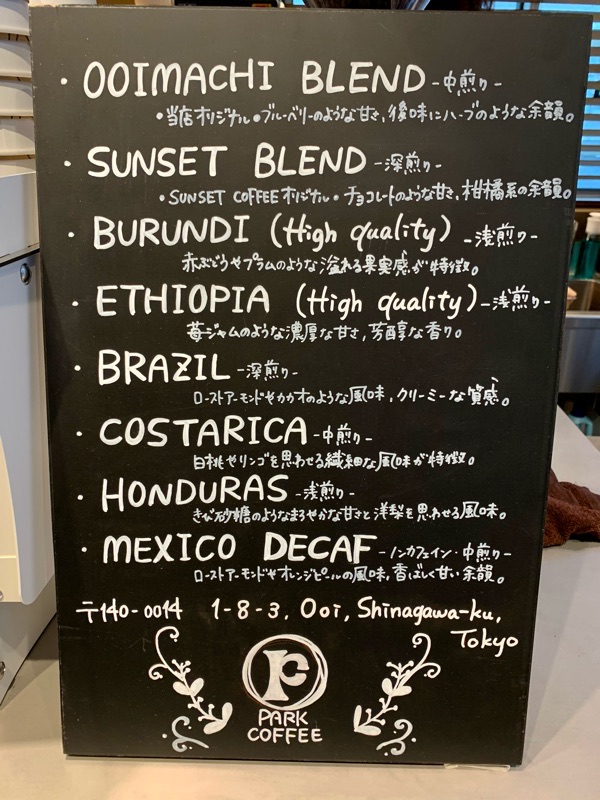 ・OOIMACHI BLEND -中煎り-
・当店オリジナル・ブルーベリーのような甘さ, 後味にハーブのような余韻。
・SUNSET BLEND -深煎り-
・SUNSET COFFEEオリジナル・チョコレートのような甘さ, 柑橘系の余韻。
・BURUNDI (High quality) -浅煎り-
赤ぶどうやプラムのような溢れる果実感が特徴。
・ETHIOPIA (High quality) -浅煎り-
苺ジャムのような濃厚な甘さ, 芳醇な香り。
・BRAZIL -深煎り-
ローストアーモンドやカカオのような風味, クリーミーな質感。
・COSTARICA -中煎り-
白桃やリンゴを思わせる繊細な風味が特徴。
・HONDURAS -浅煎り-
きび砂糖のようなまろやかな甘さと洋梨を思わせる風味。
・MEXICO DECAF -ノンカフェイン・中煎り-
ローストアーモンドやオレンジピールの風味, 香ばしく甘い余韻。
〒140-0014 1-8-3, Ooi, Shinagawa-ku,
Tokyo
PARK
COFFEE